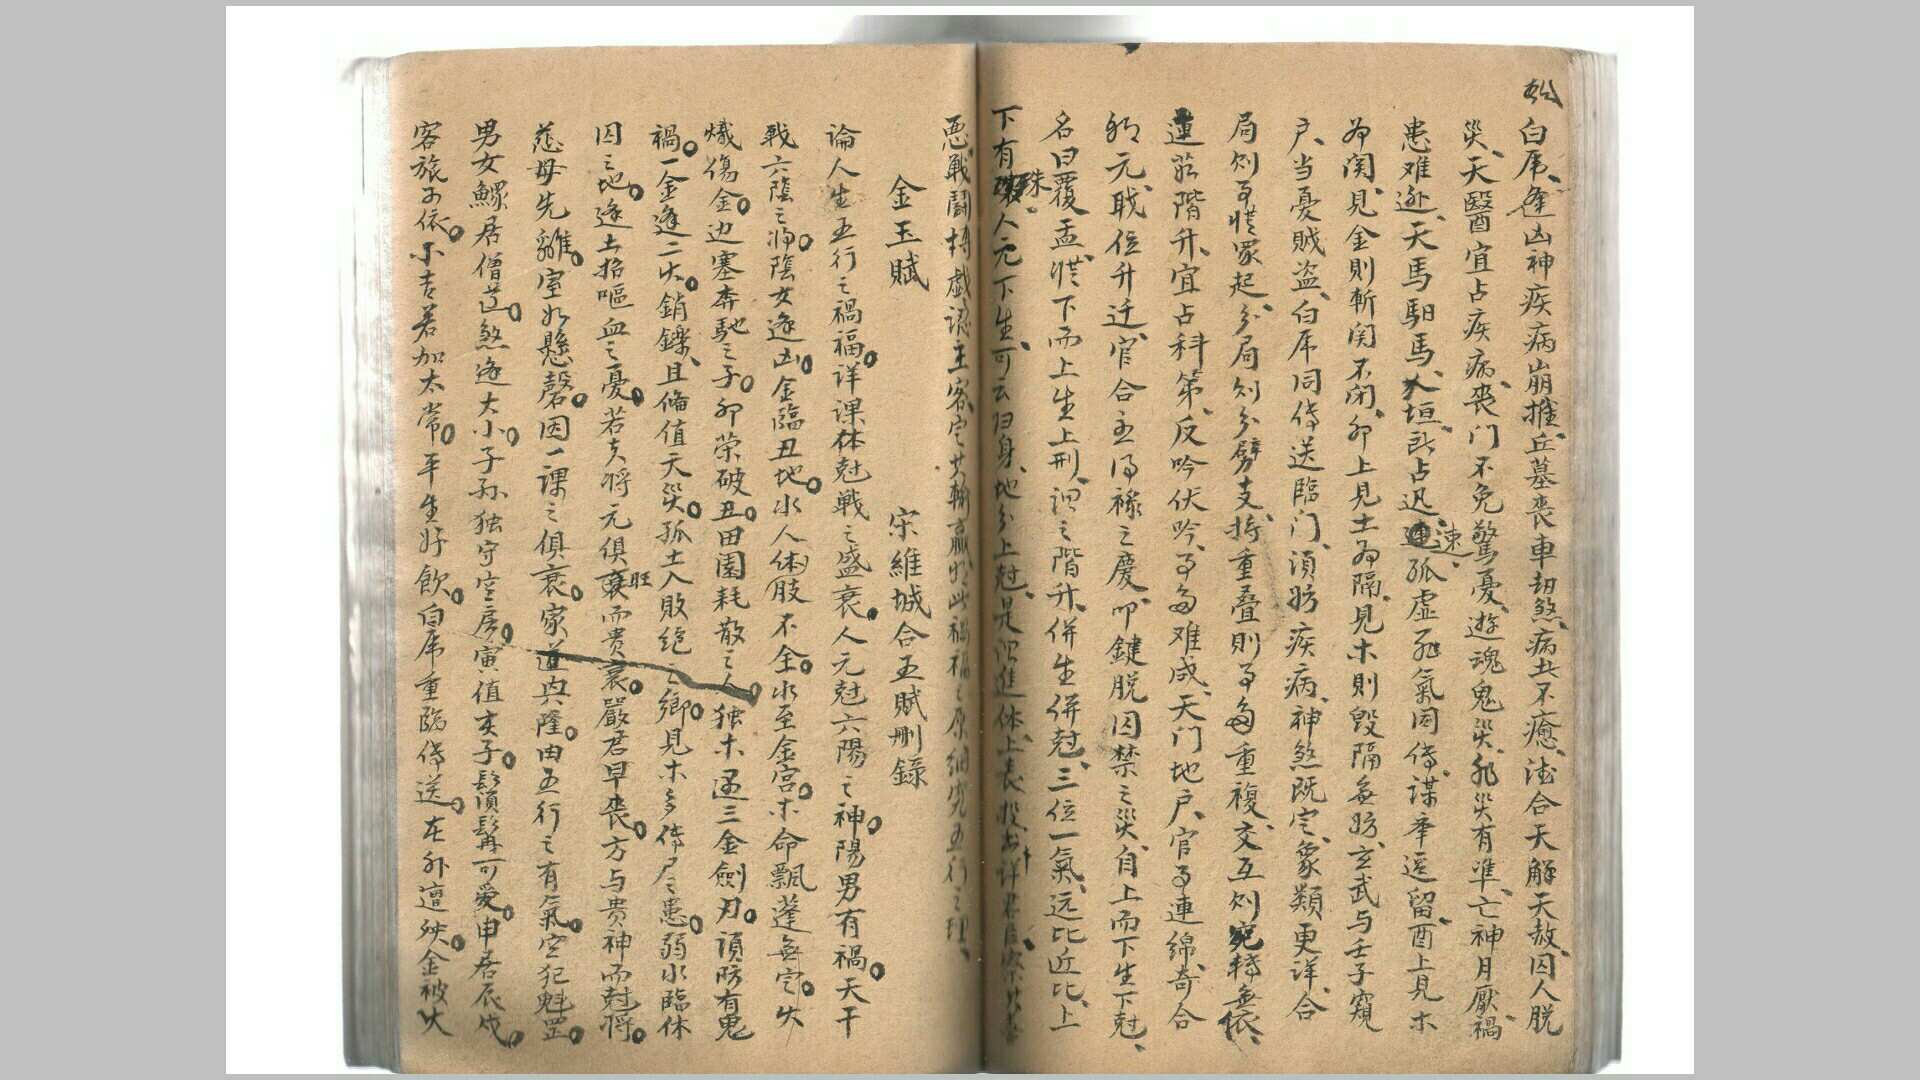 白虎逢凶神疾病崩摧丘墓喪車劫煞病者不癒法合天解天赦囚人脱
災天醫宜占疾病喪门不免驚憂遊魂鬼災飛災有準亡神月厭禍
患难逃天馬馹馬占迅速孤虛死氣同傳謀牵迍留酉上見木
為関見金則斬関不闭卯上見土為隔見木則毀隔無妨玄武与壬子窺
户当憂賊盗白虎同傳送臨门須妨疾病神煞既定象類更详合
局则事從眾起分局则分劈支持重叠則事多重複交互则宛轉無依
蓮茹階升宜占科第反吟伏吟事多难成天门地户官事連綿奇合
卯元職位升迁官合主得禄之慶叩鍵脱囚禁之災自上而下生下尅
名曰覆盂從下而上生上刑謂之階升併生併尅三位一氣远比近比上
下有殊人元下生可云归身地分上尅是謂進体上長
惡戰鬪摶戯認主客定其輸贏此禍福之原細究五行之理
金玉賦 宋維城合玉賦删録
論人生五行之禍福详課体尅戰之盛衰人元尅六陽之神陽男有禍天干
戰六陰之將陰女逢凶金臨丑地水人体肢不全水至金宮木命飄蓬無定火
熾傷金边塞奔馳之子卯荣破丑田園耗散之人独木遇三金劍刃須防有鬼
禍一金逢二火銷鑠且偹值天災孤土入敗绝之鄉見木多傳尸之患弱水臨休
囚之地逢土招嘔血之憂若夫將元俱旺而贵衰嚴君早喪方与贵神而尅將
慈母先離室如懸磬因一課之俱衰家道興隆由五行之有氣空犯魁罡
男女鰥居僧道煞逢大小子孙独守空房寅值亥子鬚髯可爱申居辰戌
客旅子依不吉若加太常平生好飲白虎重臨傳送在外遭殃金被火